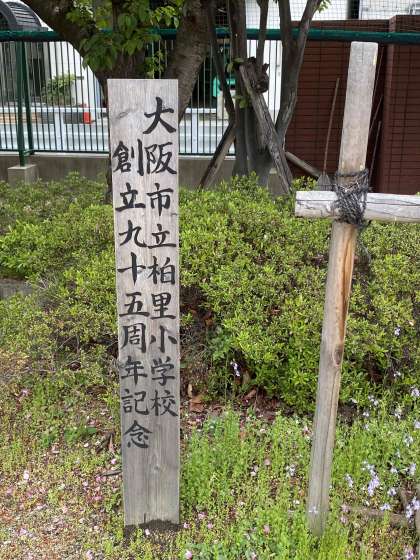 大阪市立柏里小学校
創立九十五周年記念